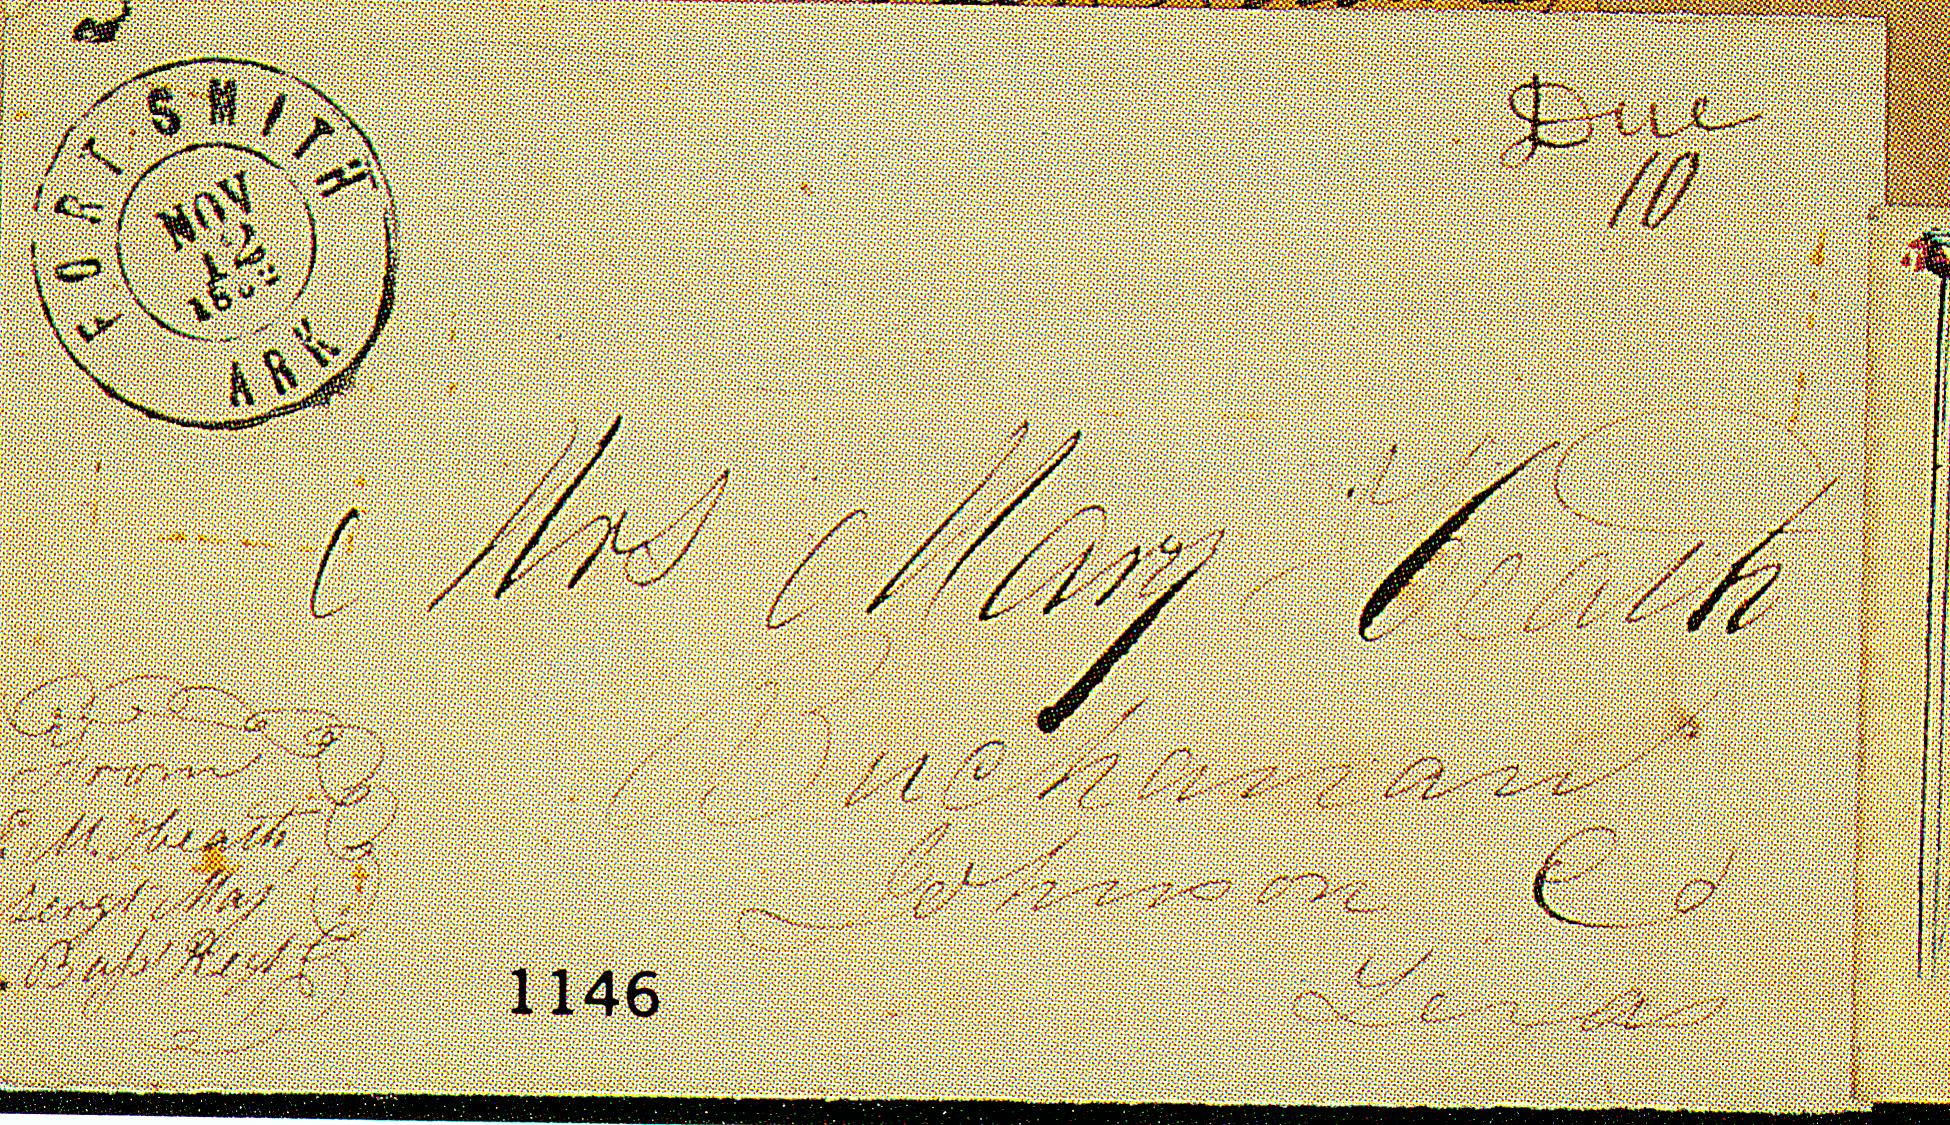 FORT SMITH
NOV
12
ARK
Due
10
Mrs Mary Heath
Buchanan
Johnson Co
Texas
From
E. M. Heath
Sergt Maj
Regt
1146